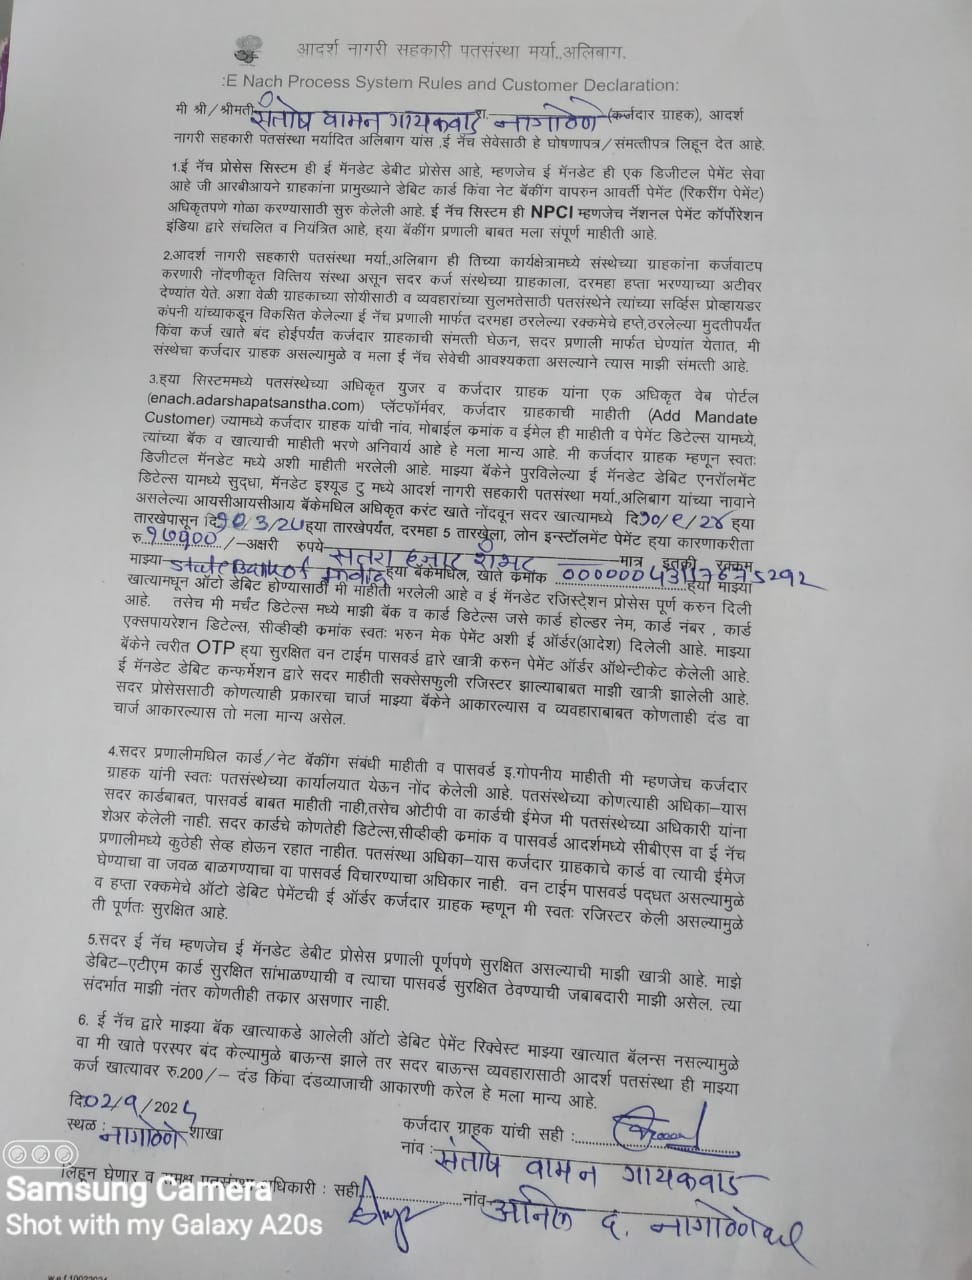 आदर्श नागरी सहकारी पतसंस्था मर्या.,अलिबाग.
:E Nach Process System Rules and Customer Declaration:
मी श्री/श्रीमती संतोष वामन गायकवाड रा. नागोठणे (कर्जदार ग्राहक), आदर्श
नागरी सहकारी पतसंस्था मर्यादित अलिबाग यांस ,ई नॅच सेवेसाठी हे घोषणापत्र/संमत्तीपत्र लिहून देत आहे.
1.ई नॅच प्रोसेस सिस्टिम ही ई मॅनडेट डेबीट प्रोसेस आहे, म्हणजेच ई मॅनडेट ही एक डिजीटल पेमेंट सेवा
आहे जी आरबीआयने ग्राहकांना प्रामुख्याने डेबिट कार्ड किंवा नेट बॅकींग वापरुन आवर्ती पेमेंट (रिकरींग पेमेंट)
अधिकृतपणे गोळा करण्यासाठी सुरु केलेली आहे. ई नॅच सिस्टिम ही NPCI म्हणजेच नॅशनल पेमेंट कॉर्पोरेशन
इंडिया द्वारे संचलित व नियंत्रित आहे, ह्या बॅकींग प्रणाली बाबत मला संपूर्ण माहीती आहे.
2.आदर्श नागरी सहकारी पतसंस्था मर्या.,अलिबाग ही तिच्या कार्यक्षेत्रामध्ये संस्थेच्या ग्राहकांना कर्जवाटप
करणारी नोंदणीकृत वित्तिय संस्था असून सदर कर्ज संस्थेच्या ग्राहकाला, दरमहा हप्ता भरण्याच्या अटीवर
देण्यांत येते. अशा वेळी ग्राहकाच्या सोयीसाठी व व्यवहारांच्या सुलभतेसाठी पतसंस्थेने त्यांच्या सर्व्हिस प्रोव्हायडर
कंपनी यांच्याकडून विकसित केलेल्या ई नॅच प्रणाली मार्फत दरमहा ठरलेल्या रक्कमेचे हप्ते,ठरलेल्या मुदतीपर्यंत
किंवा कर्ज खाते बंद होईपर्यंत कर्जदार ग्राहकाची संमत्ती घेऊन, सदर प्रणाली मार्फत घेण्यांत येतात, मी
संस्थेचा कर्जदार ग्राहक असल्यामुळे व मला ई नॅच सेवेची आवश्यकता असल्याने त्यास माझी संमत्ती आहे.
3.ह्या सिस्टिममध्ये पतसंस्थेच्या अधिकृत युजर व कर्जदार ग्राहक यांना एक अधिकृत वेब पोर्टल
(enach.adarshapatsanstha.com) प्लॅटफॉर्मवर, कर्जदार ग्राहकाची माहीती (Add Mandate
Customer) ज्यामध्ये कर्जदार ग्राहक यांची नांव, मोबाईल क्रमांक व ईमेल ही माहीती व पेमेंट डिटेल्स यामध्ये,
त्यांच्या बॅक व खात्याची माहीती भरणे अनिवार्य आहे हे मला मान्य आहे. मी कर्जदार ग्राहक म्हणून स्वतः
डिजीटल मॅनडेट मध्ये अशी माहीती भरलेली आहे. माझ्या बॅकेने पुरविलेल्या ई मॅनडेट डेबिट एनरॉलमेंट
डिटेल्स यामध्ये सुद्धा, मॅनडेट इश्यूड टु मध्ये आदर्श नागरी सहकारी पतसंस्था मर्या.,अलिबाग यांच्या नावाने
असलेल्या आयसीआयसीआय बॅकेमधिल अधिकृत करंट खाते नोंदवून सदर खात्यामध्ये दि १०/९/२४ ह्या
तारखेपासून दि १०/3/२५ ह्या तारखेपर्यंत, दरमहा 5 तारखेला, लोन इन्स्टॉलमेंट पेमेंट ह्या कारणाकरीता
रु १७१०० /-अक्षरी रुपये सतरा हजार शंभर मात्र इतकी रक्कम
माझ्या state Bank of India ह्या बॅकेमधिल, खाते क्रमांक 00000043117675292 ह्या माझ्या
खात्यामधून ऑटो डेबिट होण्यासाठी मी माहीती भरलेली आहे व ई मॅनडेट रजिस्ट्रेशन प्रोसेस पूर्ण करुन दिली
आहे. तसेच मी मर्चंट डिटेल्स मध्ये माझी बॅक व कार्ड डिटेल्स जसे कार्ड होल्डर नेम, कार्ड नंबर , कार्ड
एक्सपायरेशन डिटेल्स, सीव्हीव्ही क्रमांक स्वतः भरुन मेक पेमेंट अशी ई ऑर्डर(आदेश) दिलेली आहे. माझ्या
बॅकेने त्वरीत OTP ह्या सुरक्षित वन टाईम पासवर्ड द्वारे खात्री करुन पेमेंट ऑर्डर ऑथेन्टीकेट केलेली आहे.
ई मॅनडेट डेबिट कन्फर्मेशन द्वारे सदर माहीती सक्सेसफुली रजिस्टर झाल्याबाबत माझी खात्री झालेली आहे.
सदर प्रोसेससाठी कोणत्याही प्रकारचा चार्ज माझ्या बॅकेने आकारल्यास व व्यवहाराबाबत कोणताही दंड वा
चार्ज आकारल्यास तो मला मान्य असेल.
4.सदर प्रणालीमधिल कार्ड/नेट बॅकींग संबंधी माहीती व पासवर्ड इ.गोपनीय माहीती मी म्हणजेच कर्जदार
ग्राहक यांनी स्वतः पतसंस्थेच्या कार्यालयात येऊन नोंद केलेली आहे. पतसंस्थेच्या कोणत्याही अधिका-यास
सदर कार्डबाबत, पासवर्ड बाबत माहीती नाही,तसेच ओटीपी वा कार्डची ईमेज मी पतसंस्थेच्या अधिकारी यांना
शेअर केलेली नाही. सदर कार्डचे कोणतेही डिटेल्स,सीव्हीव्ही क्रमांक व पासवर्ड आदर्शमध्ये सीबीएस वा ई नॅच
प्रणालीमध्ये कुठेही सेव्ह होऊन रहात नाहीत. पतसंस्था अधिका-यास कर्जदार ग्राहकाचे कार्ड वा त्याची ईमेज
घेण्याचा वा जवळ बाळगण्याचा वा पासवर्ड विचारण्याचा अधिकार नाही. वन टाईम पासवर्ड पद्धत असल्यामुळे
व हप्ता रक्कमेचे ऑटो डेबिट पेमेंटची ई ऑर्डर कर्जदार ग्राहक म्हणून मी स्वतः रजिस्टर केली असल्यामुळे
ती पूर्णतः सुरक्षित आहे.
5.सदर ई नॅच म्हणजेच ई मॅनडेट डेबीट प्रोसेस प्रणाली पूर्णपणे सुरक्षित असल्याची माझी खात्री आहे. माझे
डेबिट-एटीएम कार्ड सुरक्षित सांभाळण्याची व त्याचा पासवर्ड सुरक्षित ठेवण्याची जबाबदारी माझी असेल. त्या
संदर्भात माझी नंतर कोणतीही तक्रार असणार नाही.
6. ई नॅच द्वारे माझ्या बॅक खात्याकडे आलेली ऑटो डेबिट पेमेंट रिक्वेस्ट माझ्या खात्यात बॅलन्स नसल्यामुळे
वा मी खाते परस्पर बंद केल्यामुळे बाऊन्स झाले तर सदर बाऊन्स व्यवहारासाठी आदर्श पतसंस्था ही माझ्या
कर्ज खात्यावर रु.200/- दंड किंवा दंडव्याजाची आकारणी करेल हे मला मान्य आहे.
दि 02/9/202
स्थळ : नागोठणे शाखा
कर्जदार ग्राहक यांची सही :
नांव : संतोष वामन गायकवाड
लिहून घेणार व समक्ष पतसंस्था अधिकारी : सही नांव अनिल द. नागोठणेकर
Samsung Camera
Shot with my Galaxy A20s